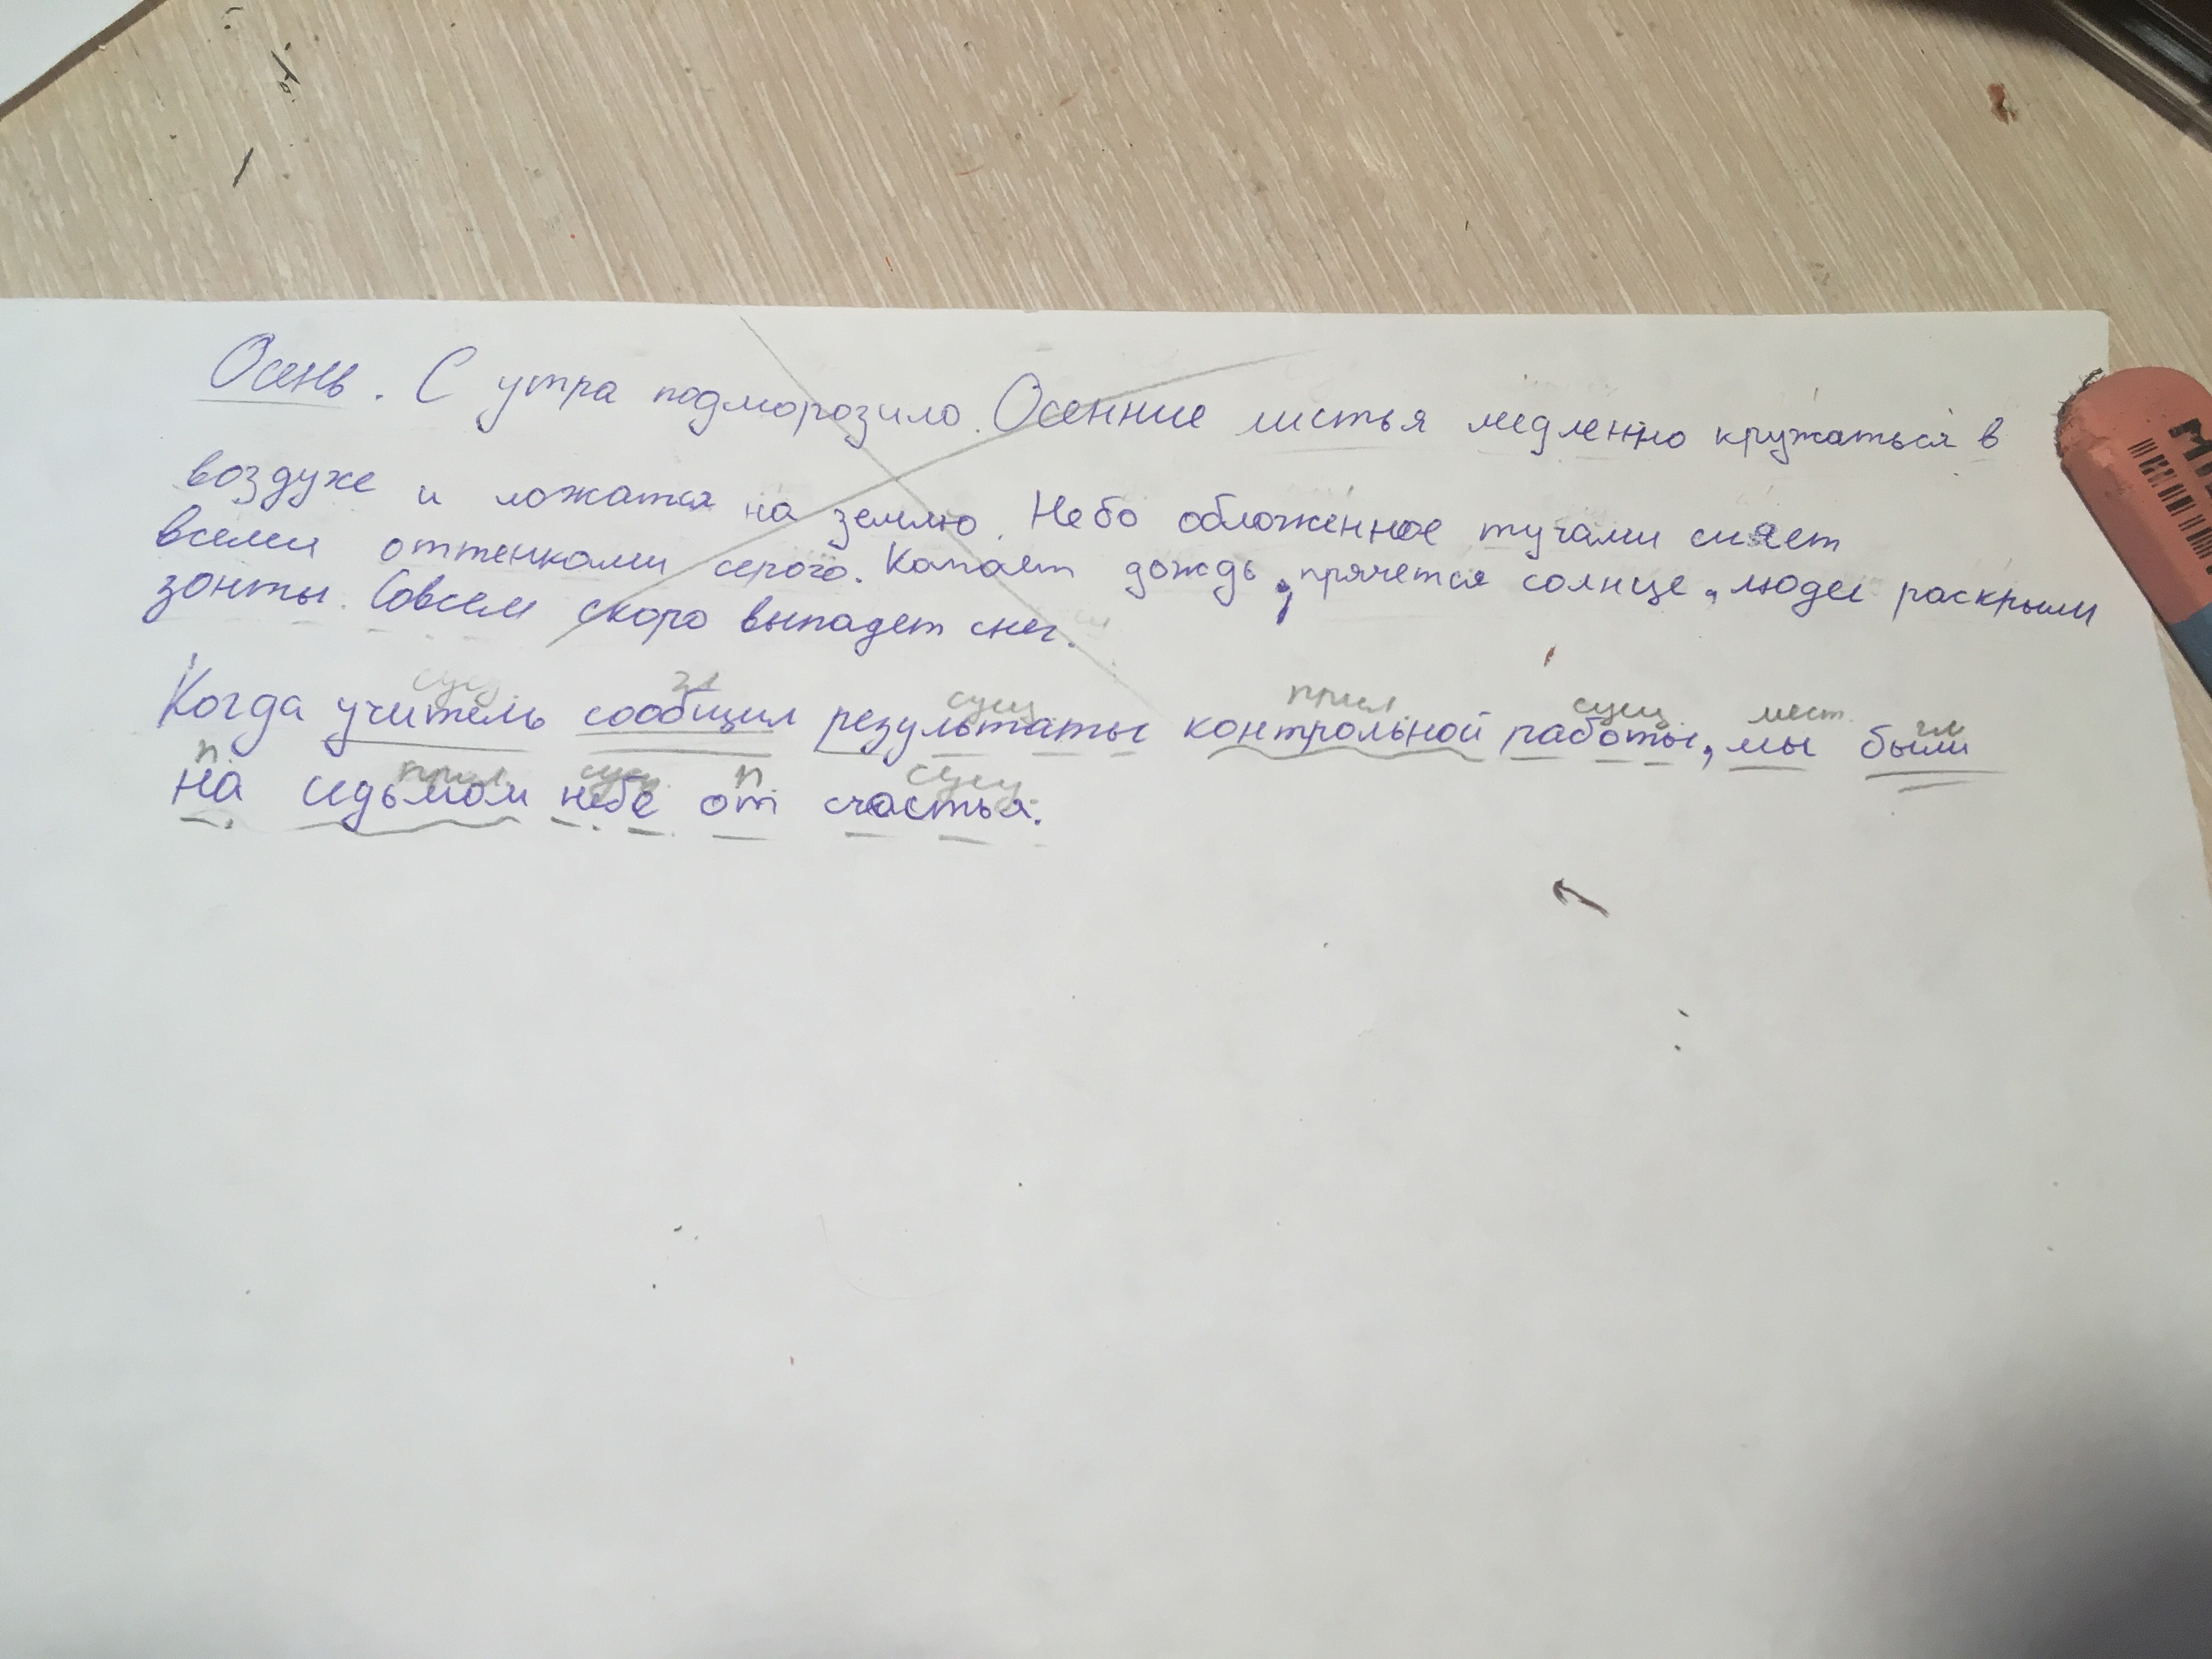 Осень. С утра подморозило. Осенние листья медленно кружаться в
воздухе и ложатся на землю. Небо обложенное тучами сияет
всеми оттенками серого. Капает дождь, прячется солнце, люди раскрыли
зонты. Совсем скоро выпадет снег.
сущ гл сущ прил сущ мест гл
Когда учитель сообщил результаты контрольной работы, мы были
п прил сущ п сущ
на седьмом небе от счастья.